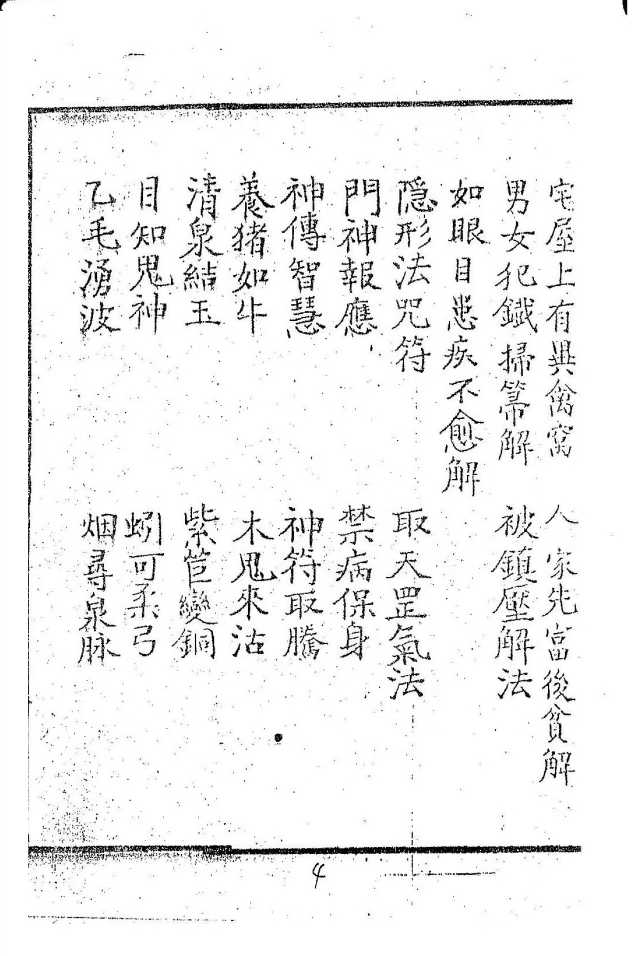 宅屋上有異禽窩　人家先富後貧解
男女犯鐵掃箒解　被鎮壓解法
如眼目患疾不愈解
隱形法咒符　取天罡氣法
門神報應　禁病保身
神傳智慧　神符取騰
養猪如牛　木鬼來沽
清泉結玉　紫笸變銅
目知鬼神　蚓可柔弓
乙毛湧波　烟尋泉脉
4